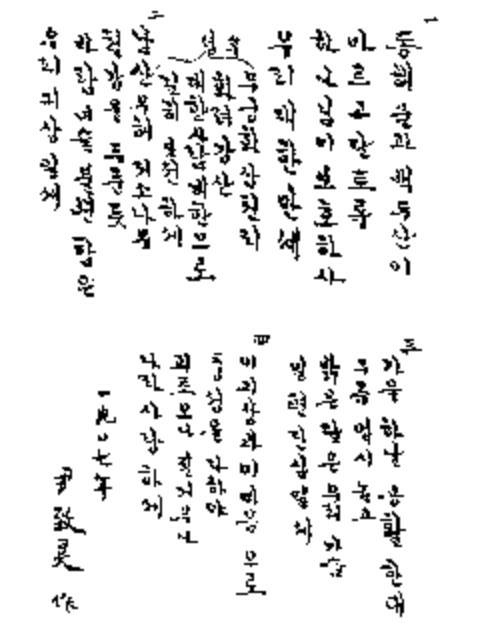 一
동해물과 백두산이
마르고 달토록
하나님이 보호하사
우리 대한만세
후렴
무궁화 삼천리
화려강산
대한사람 대한으로
길이 보전하세
二
남산우헤 저 소나무
철갑을 두른듯
바람이슬 불변함은
우리 긔상일세
三
가을하날 공활한대
구름업시 놉고
밝은달은 우리가슴
일편단심일세
四
이 긔상과 이 마음으로
충성을 다하야
괴로오나 질거우나
나라사랑하세
一九〇七年
尹致昊 作